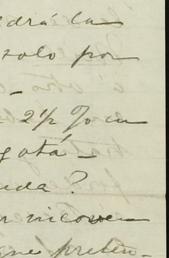 drá la
solo por
2 1/2 % en
gotá
uda ?
r nicove
que preten-